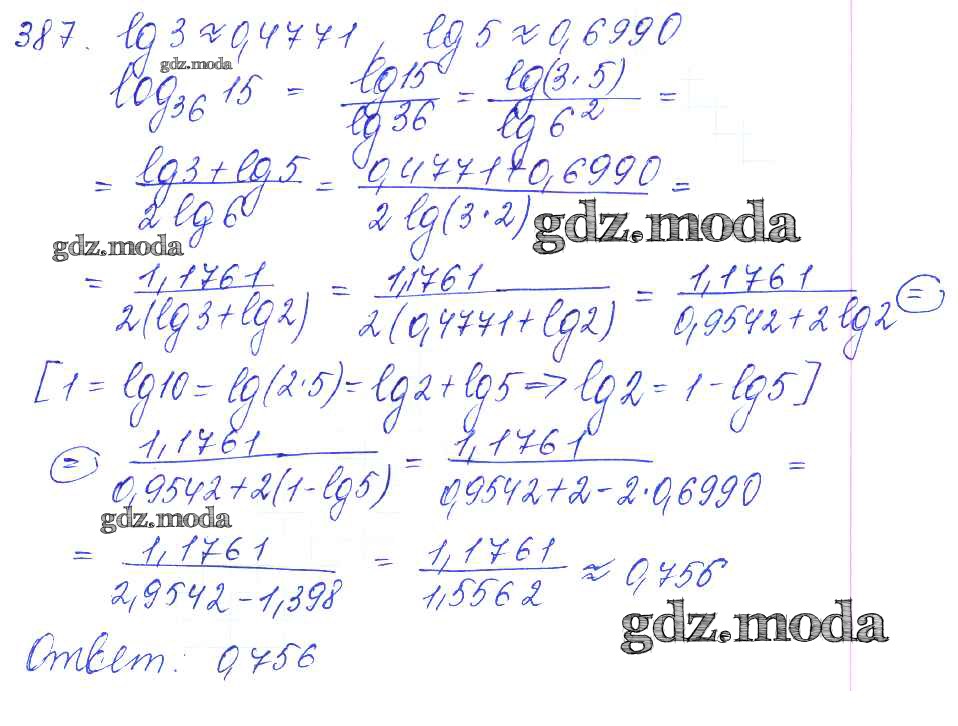 387. lg 3 ≈ 0,4771, lg 5 ≈ 0,6990
gdz.moda
log₃₆ 15 = lg15/lg36 = lg(3·5)/lg6² =
= (lg3 + lg5)/(2 lg6) = (0,4771+0,6990)/(2 lg(3·2)) =
gdz.moda
gdz.moda
= 1,1761/(2(lg3+lg2)) = 1,1761/(2(0,4771+lg2)) = 1,1761/(0,9542+2lg2) =
[1 = lg10 = lg(2·5) = lg2 + lg5 => lg2 = 1 - lg5]
= 1,1761/(0,9542+2(1-lg5)) = 1,1761/(0,9542+2-2·0,6990) =
gdz.moda
= 1,1761/(2,9542-1,398) = 1,1761/1,5562 ≈ 0,756
gdz.moda
Ответ: 0,756